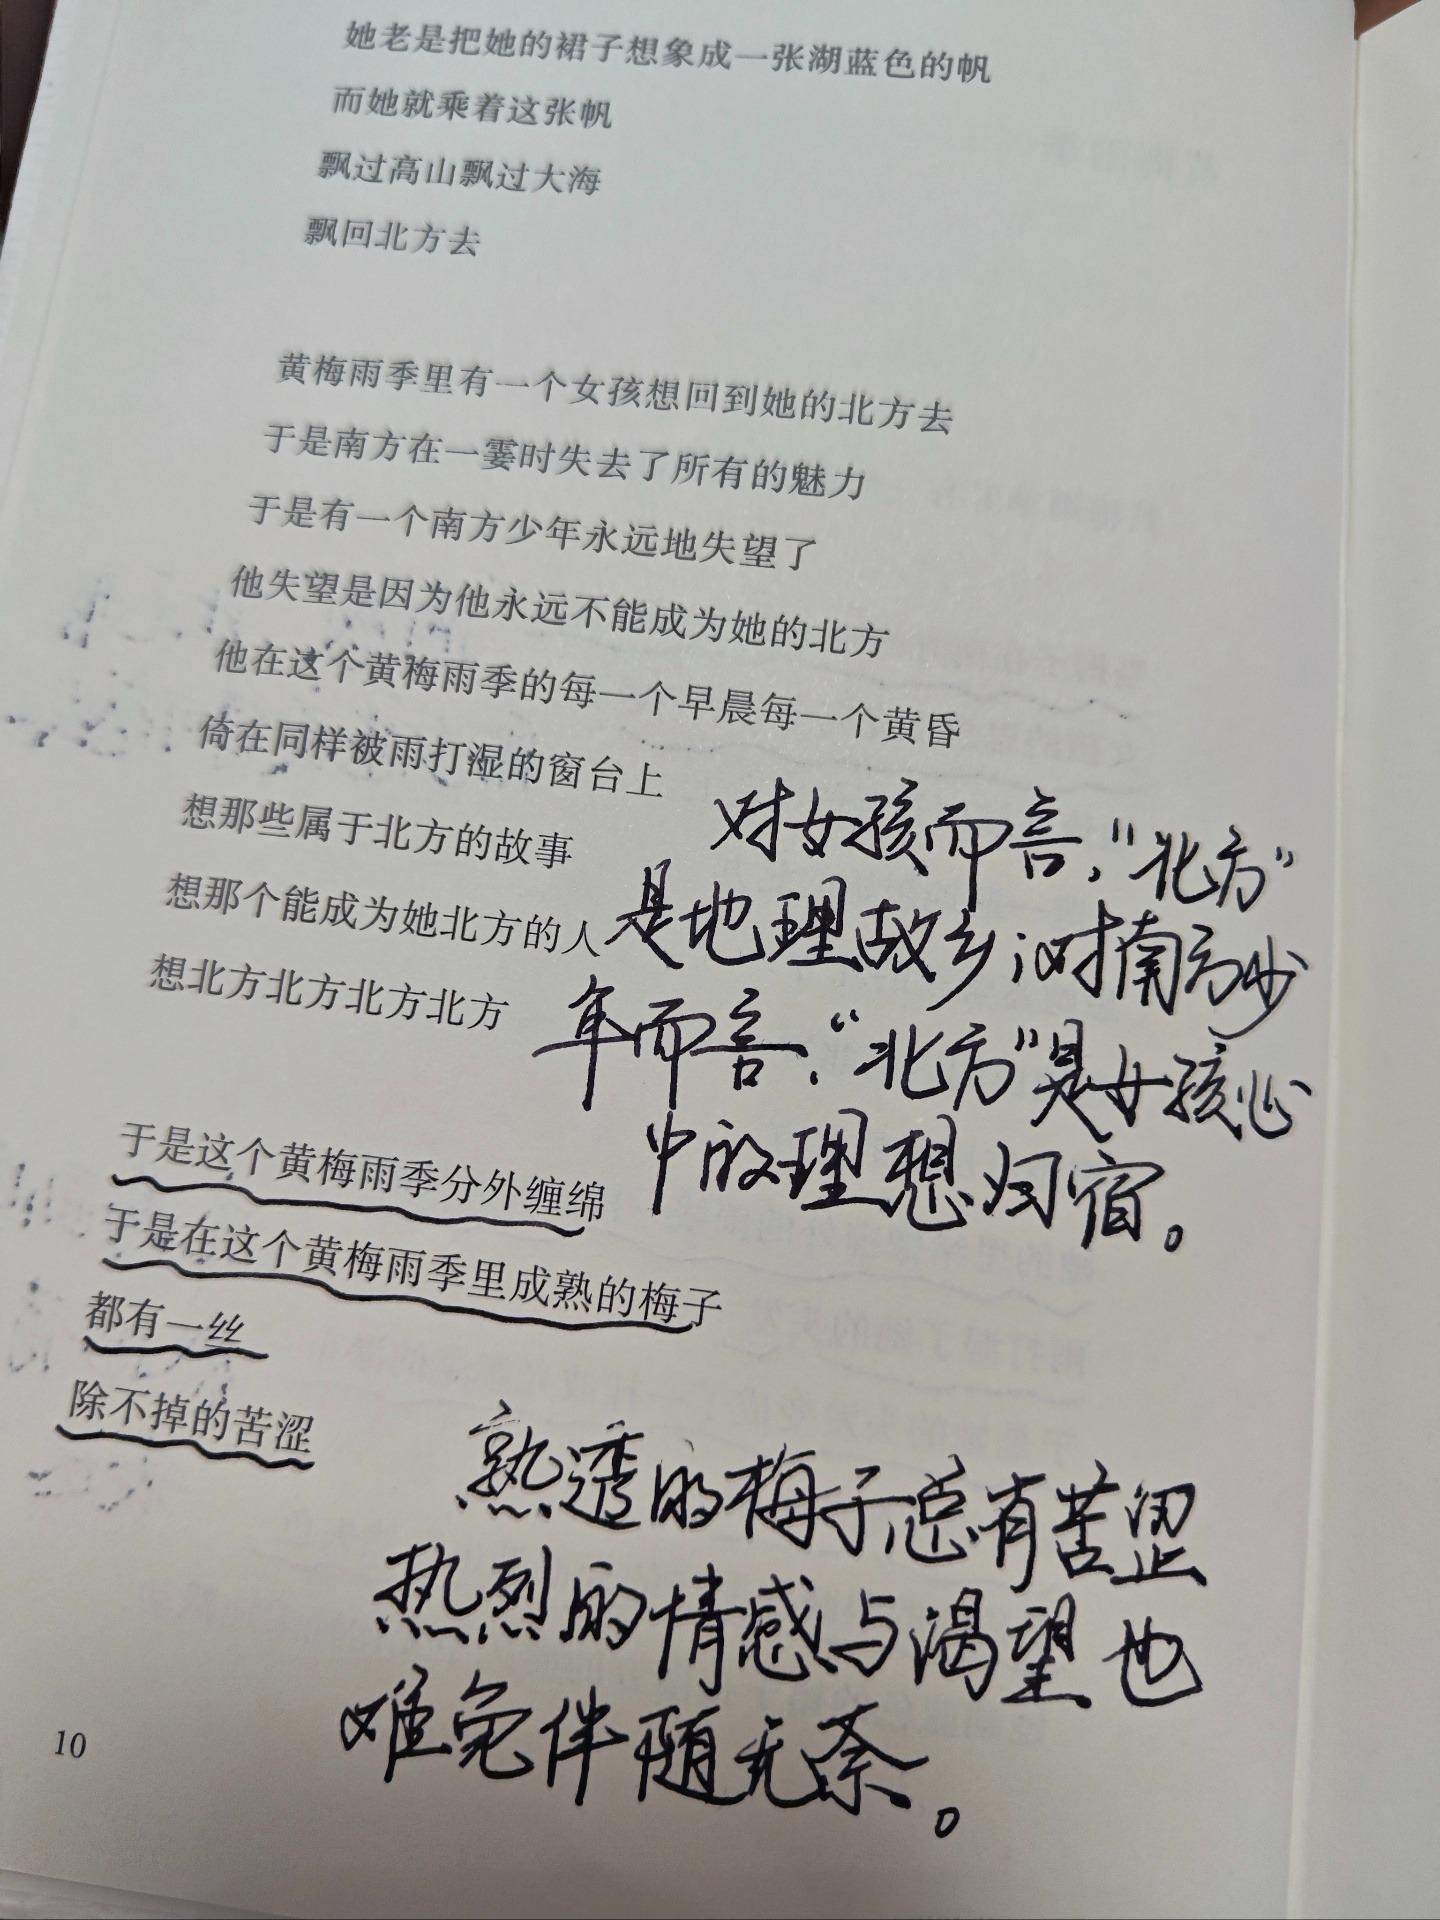 她老是把她的裙子想象成一张湖蓝色的帆
而她就乘着这张帆
飘过高山飘过大海
飘回北方去
黄梅雨季里有一个女孩想回到她的北方去
于是南方在一霎时失去了所有的魅力
于是有一个南方少年永远地失望了
他失望是因为他永远不能成为她的北方
他在这个黄梅雨季的每一个早晨每一个黄昏
倚在同样被雨打湿的窗台上
想那些属于北方的故事
想那个能成为她北方的人
想北方北方北方北方
对女孩而言，“北方”
是地理故乡；对南方少
年而言，“北方”是女孩心
中的理想归宿。
于是这个黄梅雨季分外缠绵
于是在这个黄梅雨季里成熟的梅子
都有一丝
除不掉的苦涩
熟透的梅子总有苦涩
热烈的情感与渴望也
难免伴随无奈。
10